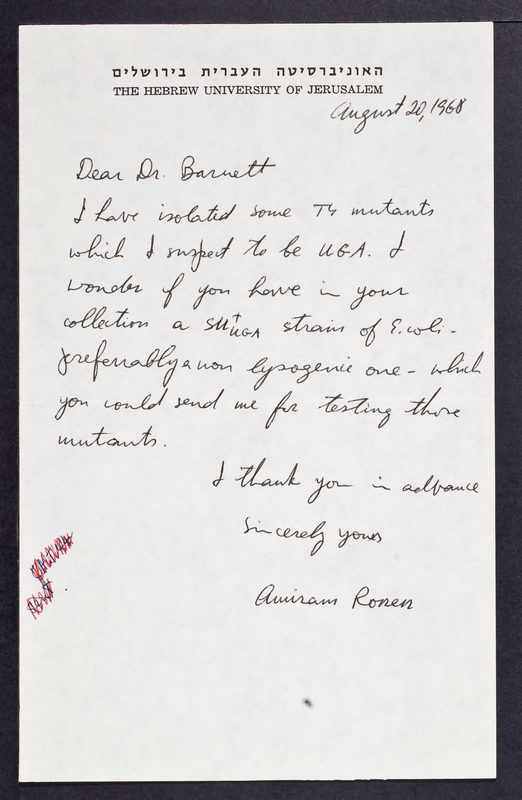 האוניברסיטה העברית בירושלים
THE HEBREW UNIVERSITY OF JERUSALEM
August 20, 1968
Dear Dr. Barnett
I have isolated some T4 mutants
which I suspect to be UGA. I
wonder if you have in your
collection a su⁺UGA strain of E. coli -
preferrably a non lysogenic one - which
you could send me for testing those
mutants.
I thank you in advance
Sincerely yours
Amiram Ronen